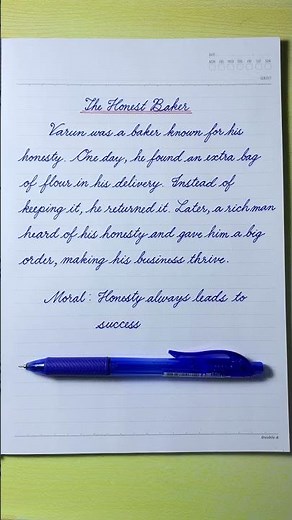 The Honest Baker
Varun was a baker known for his
honesty. One day, he found an extra bag
of flour in his delivery. Instead of
keeping it, he returned it. Later, a rich man
heard of his honesty and gave him a big
order, making his business thrive.
Moral: Honesty always leads to
success